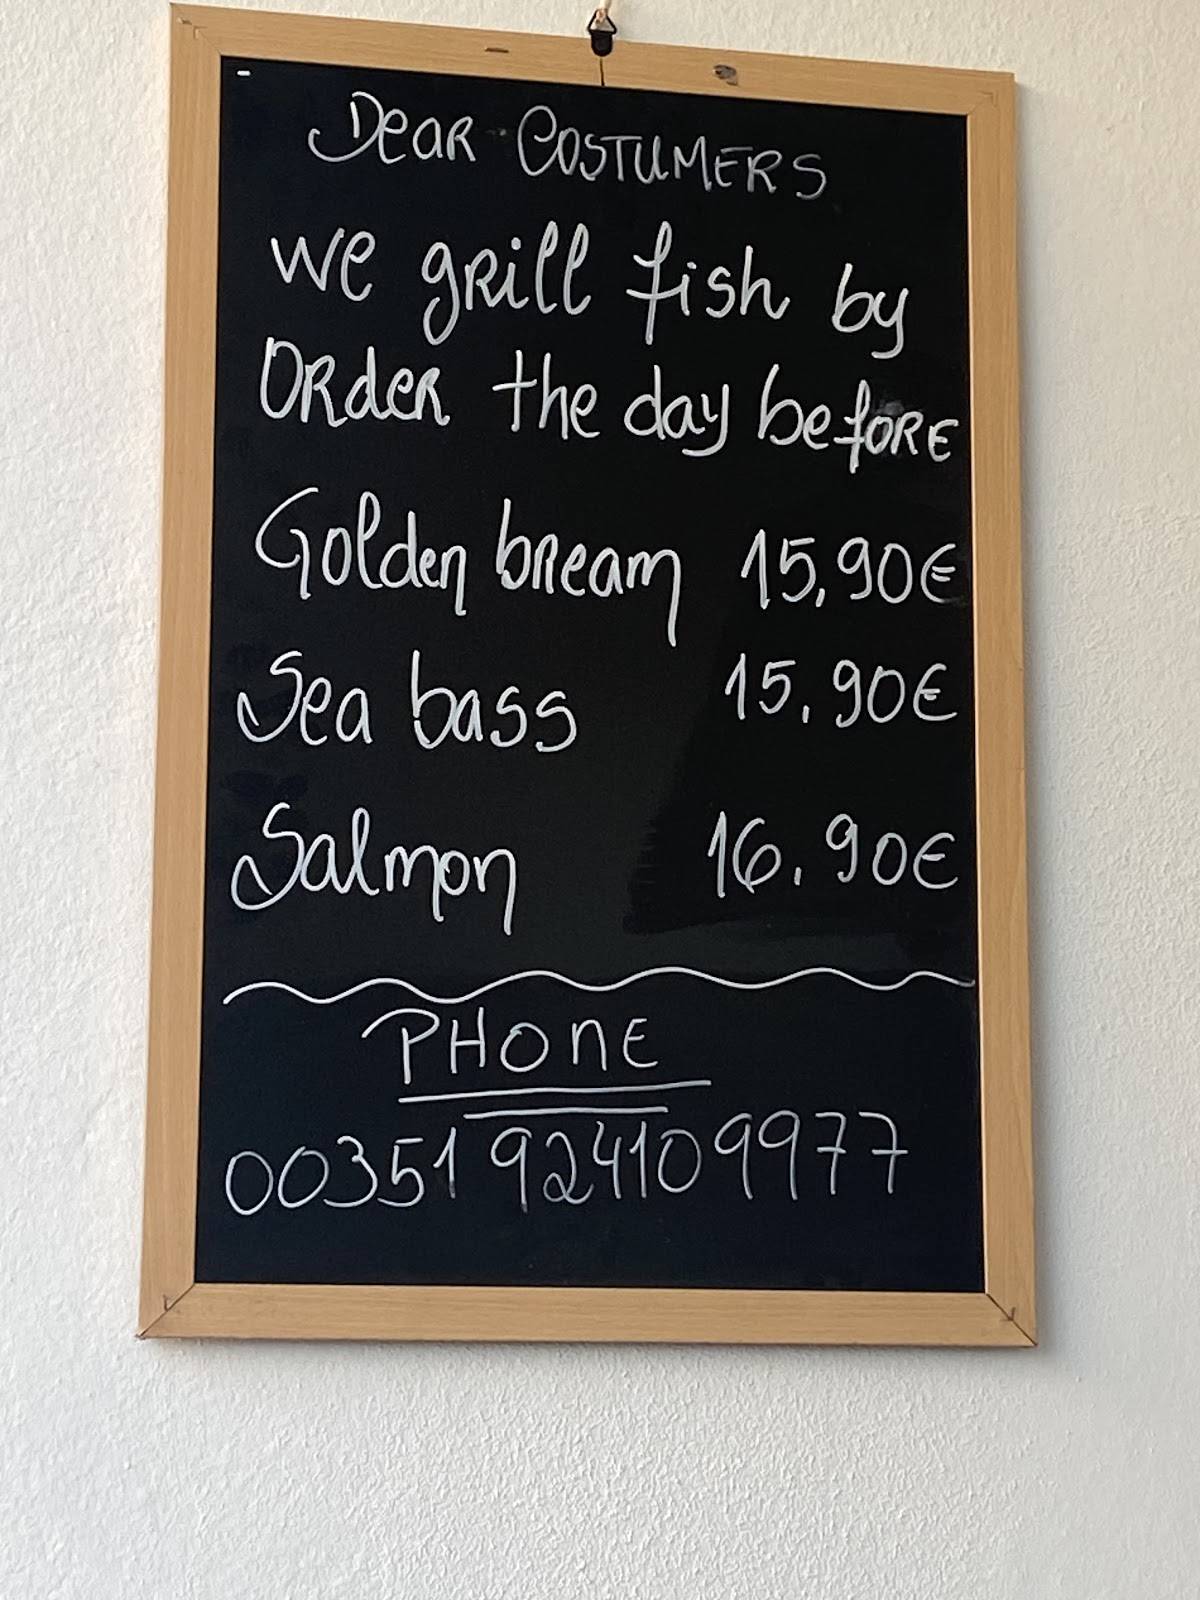 Dear COSTUMERS
we grill fish by
Order the day before
Golden bream 15,90€
Sea bass 15,90€
Salmon 16,90€
PHONE
00351 924109977